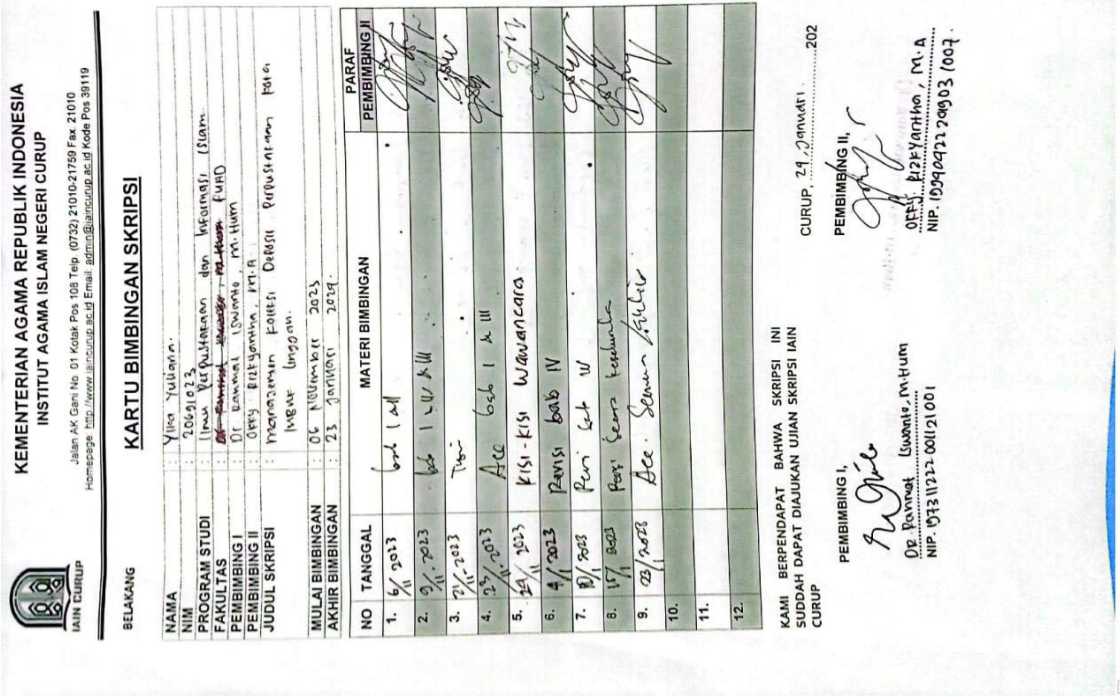 IAIN CURUP
KEMENTERIAN AGAMA REPUBLIK INDONESIA
INSTITUT AGAMA ISLAM NEGERI CURUP
Jalan AK Gani No. 01 Kotak Pos 108 Telp. (0732) 21010-21759 Fax. 21010
Homepage http://www.iaincurup.ac.id Email: admin@iaincurup.ac.id Kode Pos 39119
BELAKANG
KARTU BIMBINGAN SKRIPSI
NAMA : Ylisa Yuliana
NIM : 20691023
PROGRAM STUDI : Ilmu Perpustakaan dan Informasi Islam
FAKULTAS : FUAD
PEMBIMBING I : Dr Rahmat Iswanto, M.Hum
PEMBIMBING II : Okky Rizkyantha, M.A
JUDUL SKRIPSI : Manajemen Koleksi Deposit Perpustakaan Kota
Lubuk Linggau.
MULAI BIMBINGAN : 06 November 2023
AKHIR BIMBINGAN : 23 Januari 2024.
NO TANGGAL MATERI BIMBINGAN PARAF PEMBIMBING II
1. 6/11 2023 bab I
2. 9/11 2023 bab I II & III
3. 21/11 2023
4. 23/11 2023 Acc bab I II & III
5. 29/11 2023 KISI-KISI Wawancara.
6. 4/1 2023 Revisi bab IV
7. 2023 bab IV
8. 15/1 2023
9. 23/1 2023 Acc.
10.
11.
12.
KAMI BERPENDAPAT BAHWA SKRIPSI INI
SUDDAH DAPAT DIAJUKAN UJIAN SKRIPSI IAIN
CURUP
CURUP, 29, Januari 202
PEMBIMBING I,
Dr. Rahmat Iswanto, M.Hum
NIP. 19731122 200121001
PEMBIMBING II,
Okky Rizkyantha, M.A
NIP. 199404222 201903 1007.